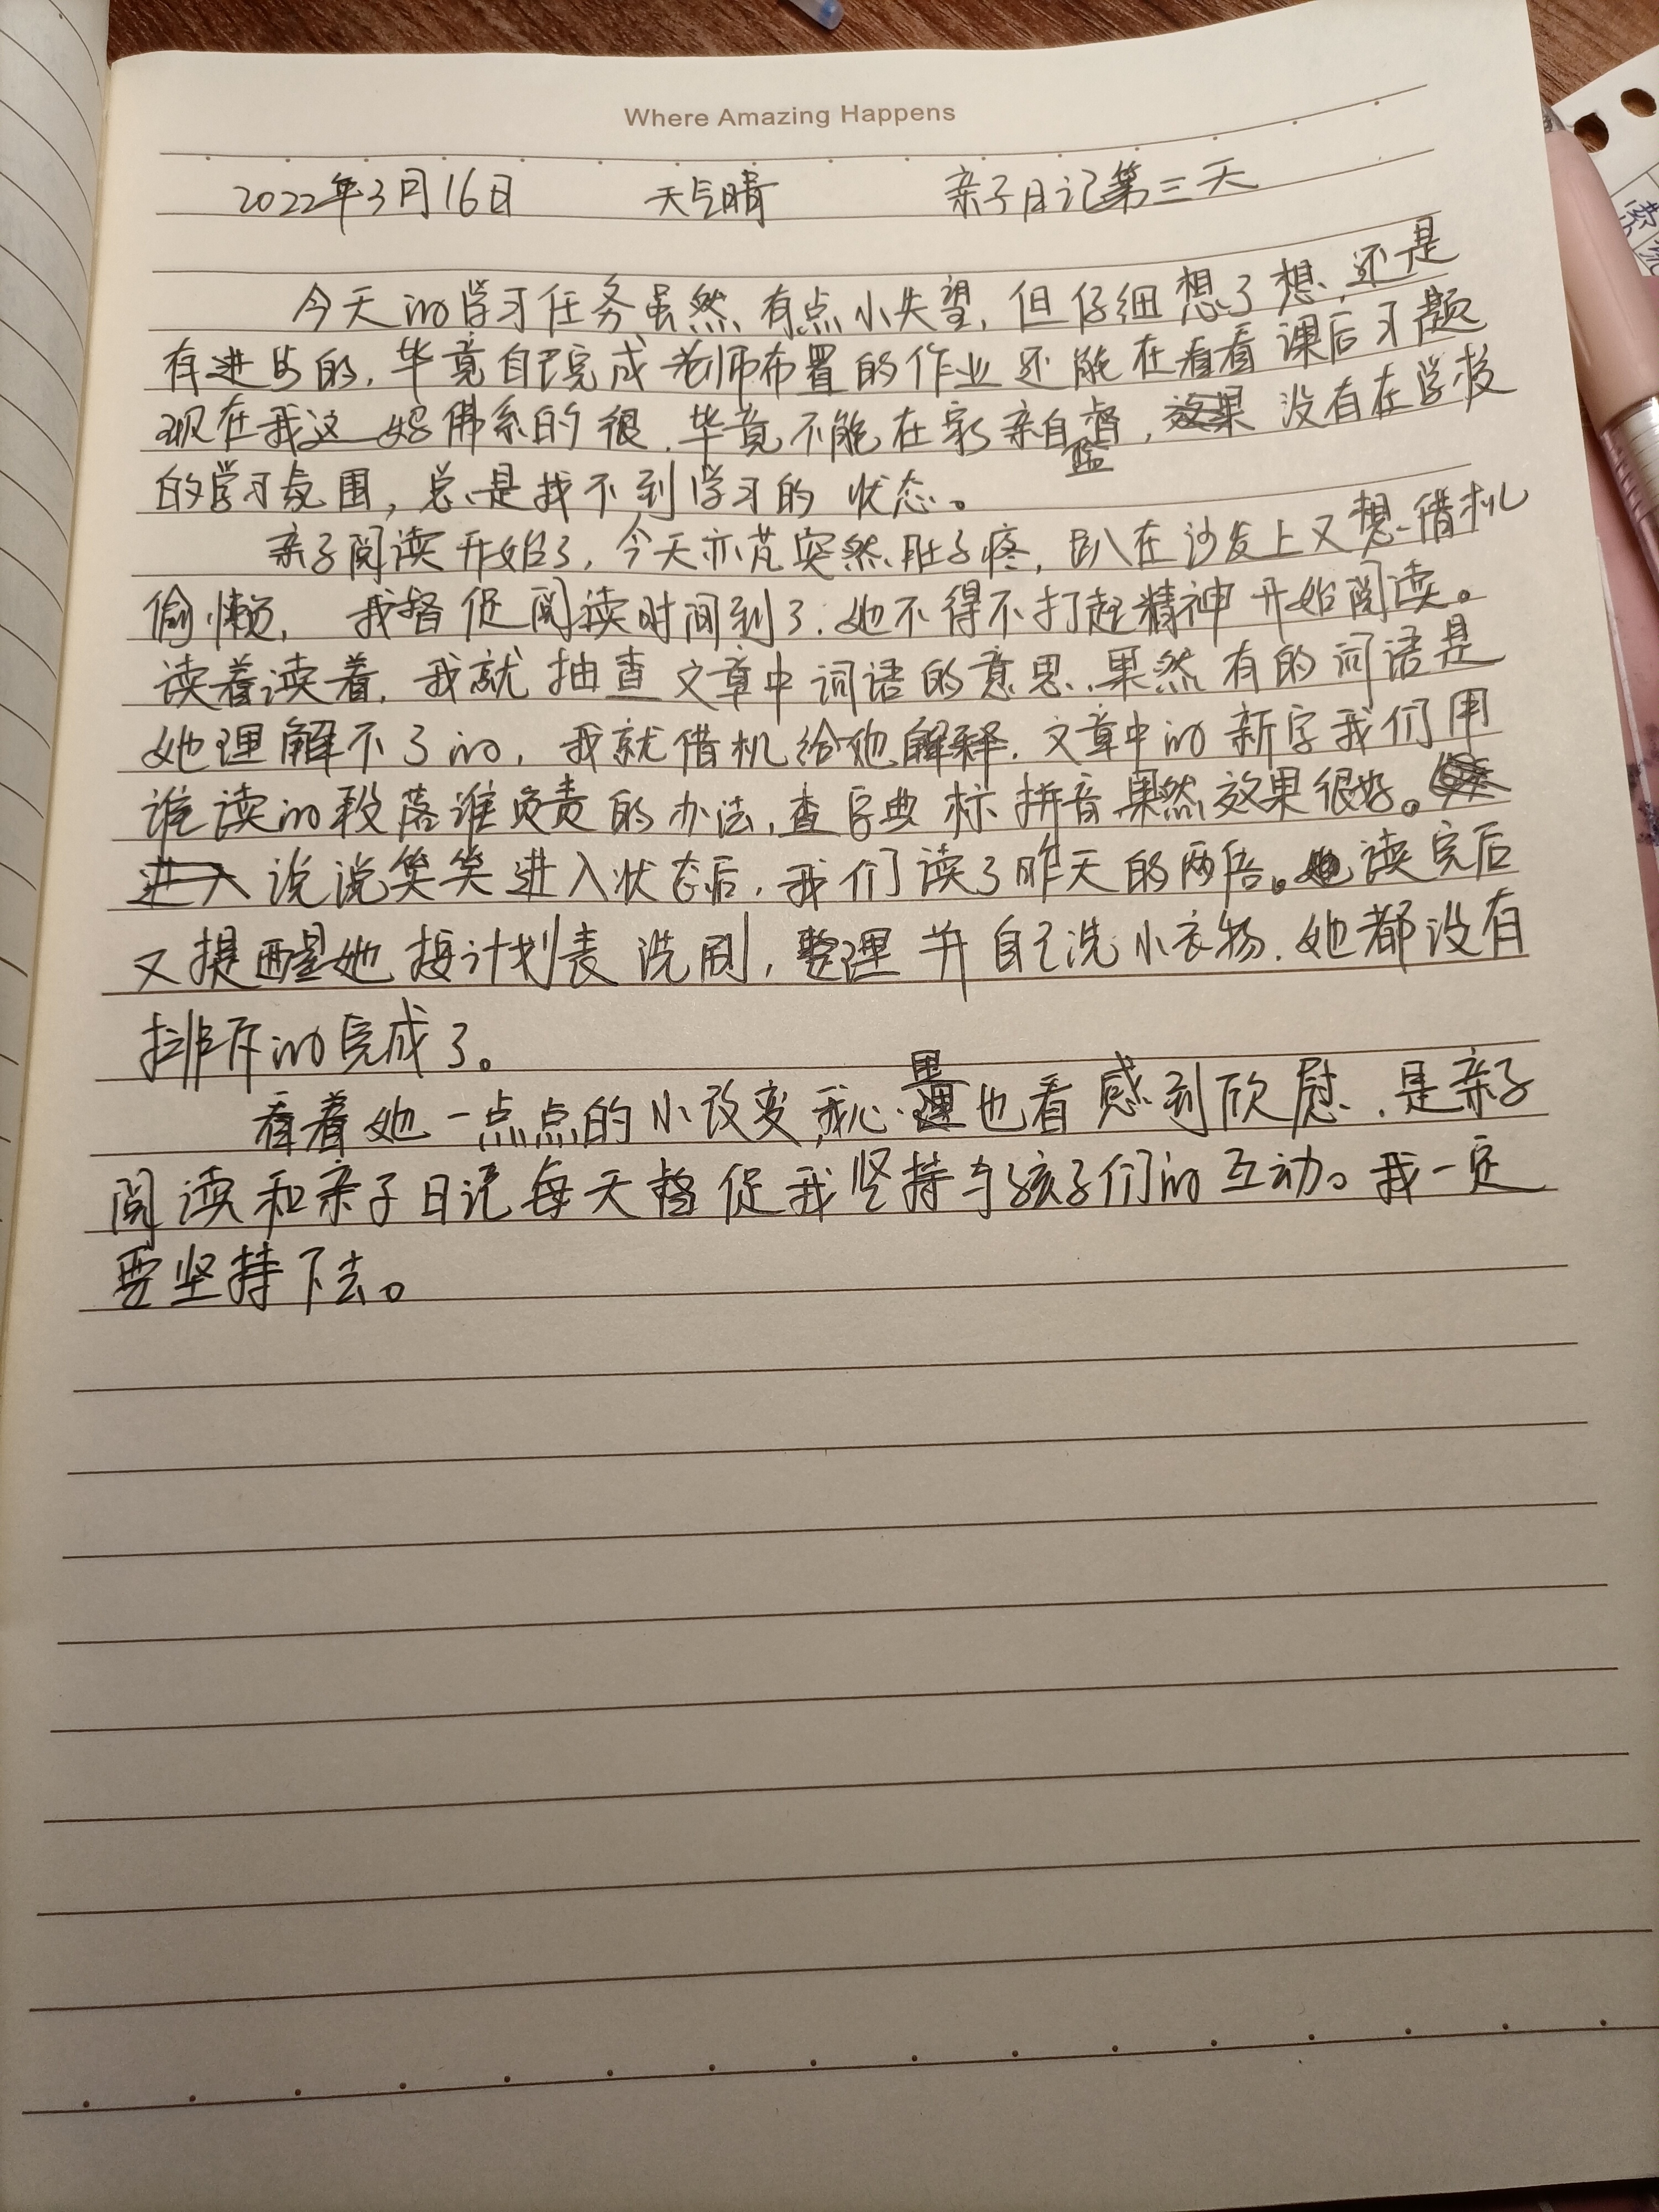 Where Amazing Happens
2022年3月16日 天气晴 亲子日记第三天
今天的学习任务虽然有点小失望,但仔细想了想,还是
有进步的,毕竟自己完成老师布置的作业还能在看看课后习题
现在我这 佛系的很,毕竟不能在家亲自监督,效果没有在学校
的学习氛围,总是找不到学习的状态。
亲子阅读开始了,今天亦芃突然肚子疼,趴在沙发上又想借机
偷懒,我督促阅读时间到了,她不得不打起精神开始阅读。
读着读着,我就抽查文章中词语的意思,果然有的词语是
她理解不了的,我就借机给她解释,文章中的新字我们用
谁读的段落谁负责的办法,查字典标拼音果然效果很好。
进入说说笑笑进入状态后,我们读了昨天的两倍。读完后
又提醒她按计划表洗刷,整理并自己洗小衣物,她都没有
排斥的完成了。
看着她一点点的小改变,我心里也看感到欣慰,是亲子
阅读和亲子日记每天督促我坚持与孩子们的互动。我一定
要坚持下去。